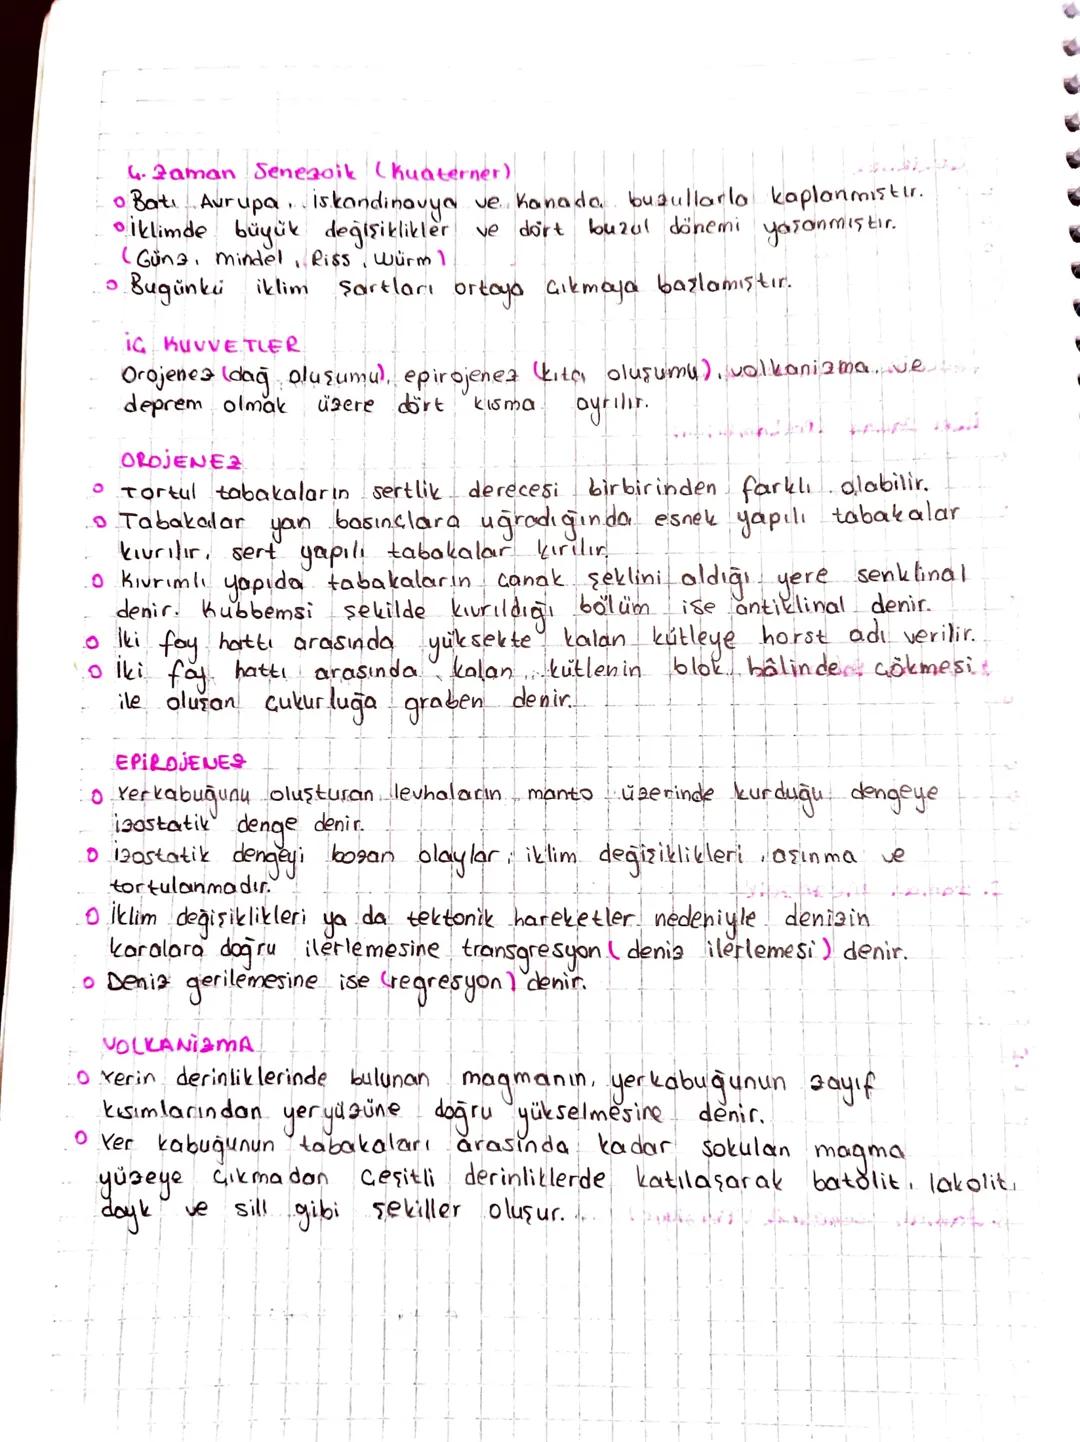 4. Zaman Senezoik (Kuaterner)
Batı Avrupa, İskandinavya ve Kanada buzullarla kaplanmıştır.
İklimde büyük değişiklikler ve dört buzul dönemi yaşanmıştır.
(Günz, mindel, Riss, Würm)
Bugünkü iklim şartları ortaya çıkmaya başlamıştır.
İÇ KUVVETLER
Orojenez (dağ oluşumu), epirojenez (kıta oluşumu), volkanizma, ve
deprem olmak üzere dört kısma ayrılır.
OROJENEZ
Tortul tabakaların sertlik derecesi birbirinden farklı olabilir.
Tabakalar yan basınçlara uğradığında esnek yapılı tabakalar
kıvrılır, sert yapılı tabakalar kırılır.
Kıvrımlı yapıda tabakaların çanak şeklini aldığı yere senklinal
denir. Kubbemsi şekilde kıvrıldığı bölüm ise antiklinal denir.
İki fay hattı arasında yüksekte kalan kütleye horst adı verilir.
İki fay hattı arasında kalan kütlenin blok hâlinde çökmesi
ile oluşan çukurluğa graben denir.
EPİROJENEZ
Yerkabuğunu oluşturan levhaların manto üzerinde kurduğu dengeye
izostatik denge denir.
İzostatik dengeyi bozan olaylar, iklim değişiklikleri, aşınma ve
tortulanmadır.
İklim değişiklikleri ya da tektonik hareketler nedeniyle denizin
karalara doğru ilerlemesine transgresyon (deniz ilerlemesi) denir.
Deniz gerilemesine ise (regresyon) denir.
VOLKANİZMA
Yerin derinliklerinde bulunan magmanın, yerkabuğunun zayıf
kısımlarından yeryüzüne doğru yükselmesine denir.
Yer kabuğunun tabakaları arasında kadar sokulan magma
yüzeye çıkmadan çeşitli derinliklerde katılaşarak batolit, lakolit,
dayk ve sill gibi şekiller oluşur.